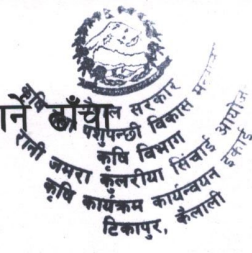 ाने ढाँचा
नेपाल सरकार
कृषि तथा पशुपन्छी विकास मन्त्रालय
कृषि विभाग
रानी जमरा कुलरीया सिंचाई आयोजना
कृषि कार्यक्रम कार्यन्वयन इकाई
टिकापुर, कैलाली